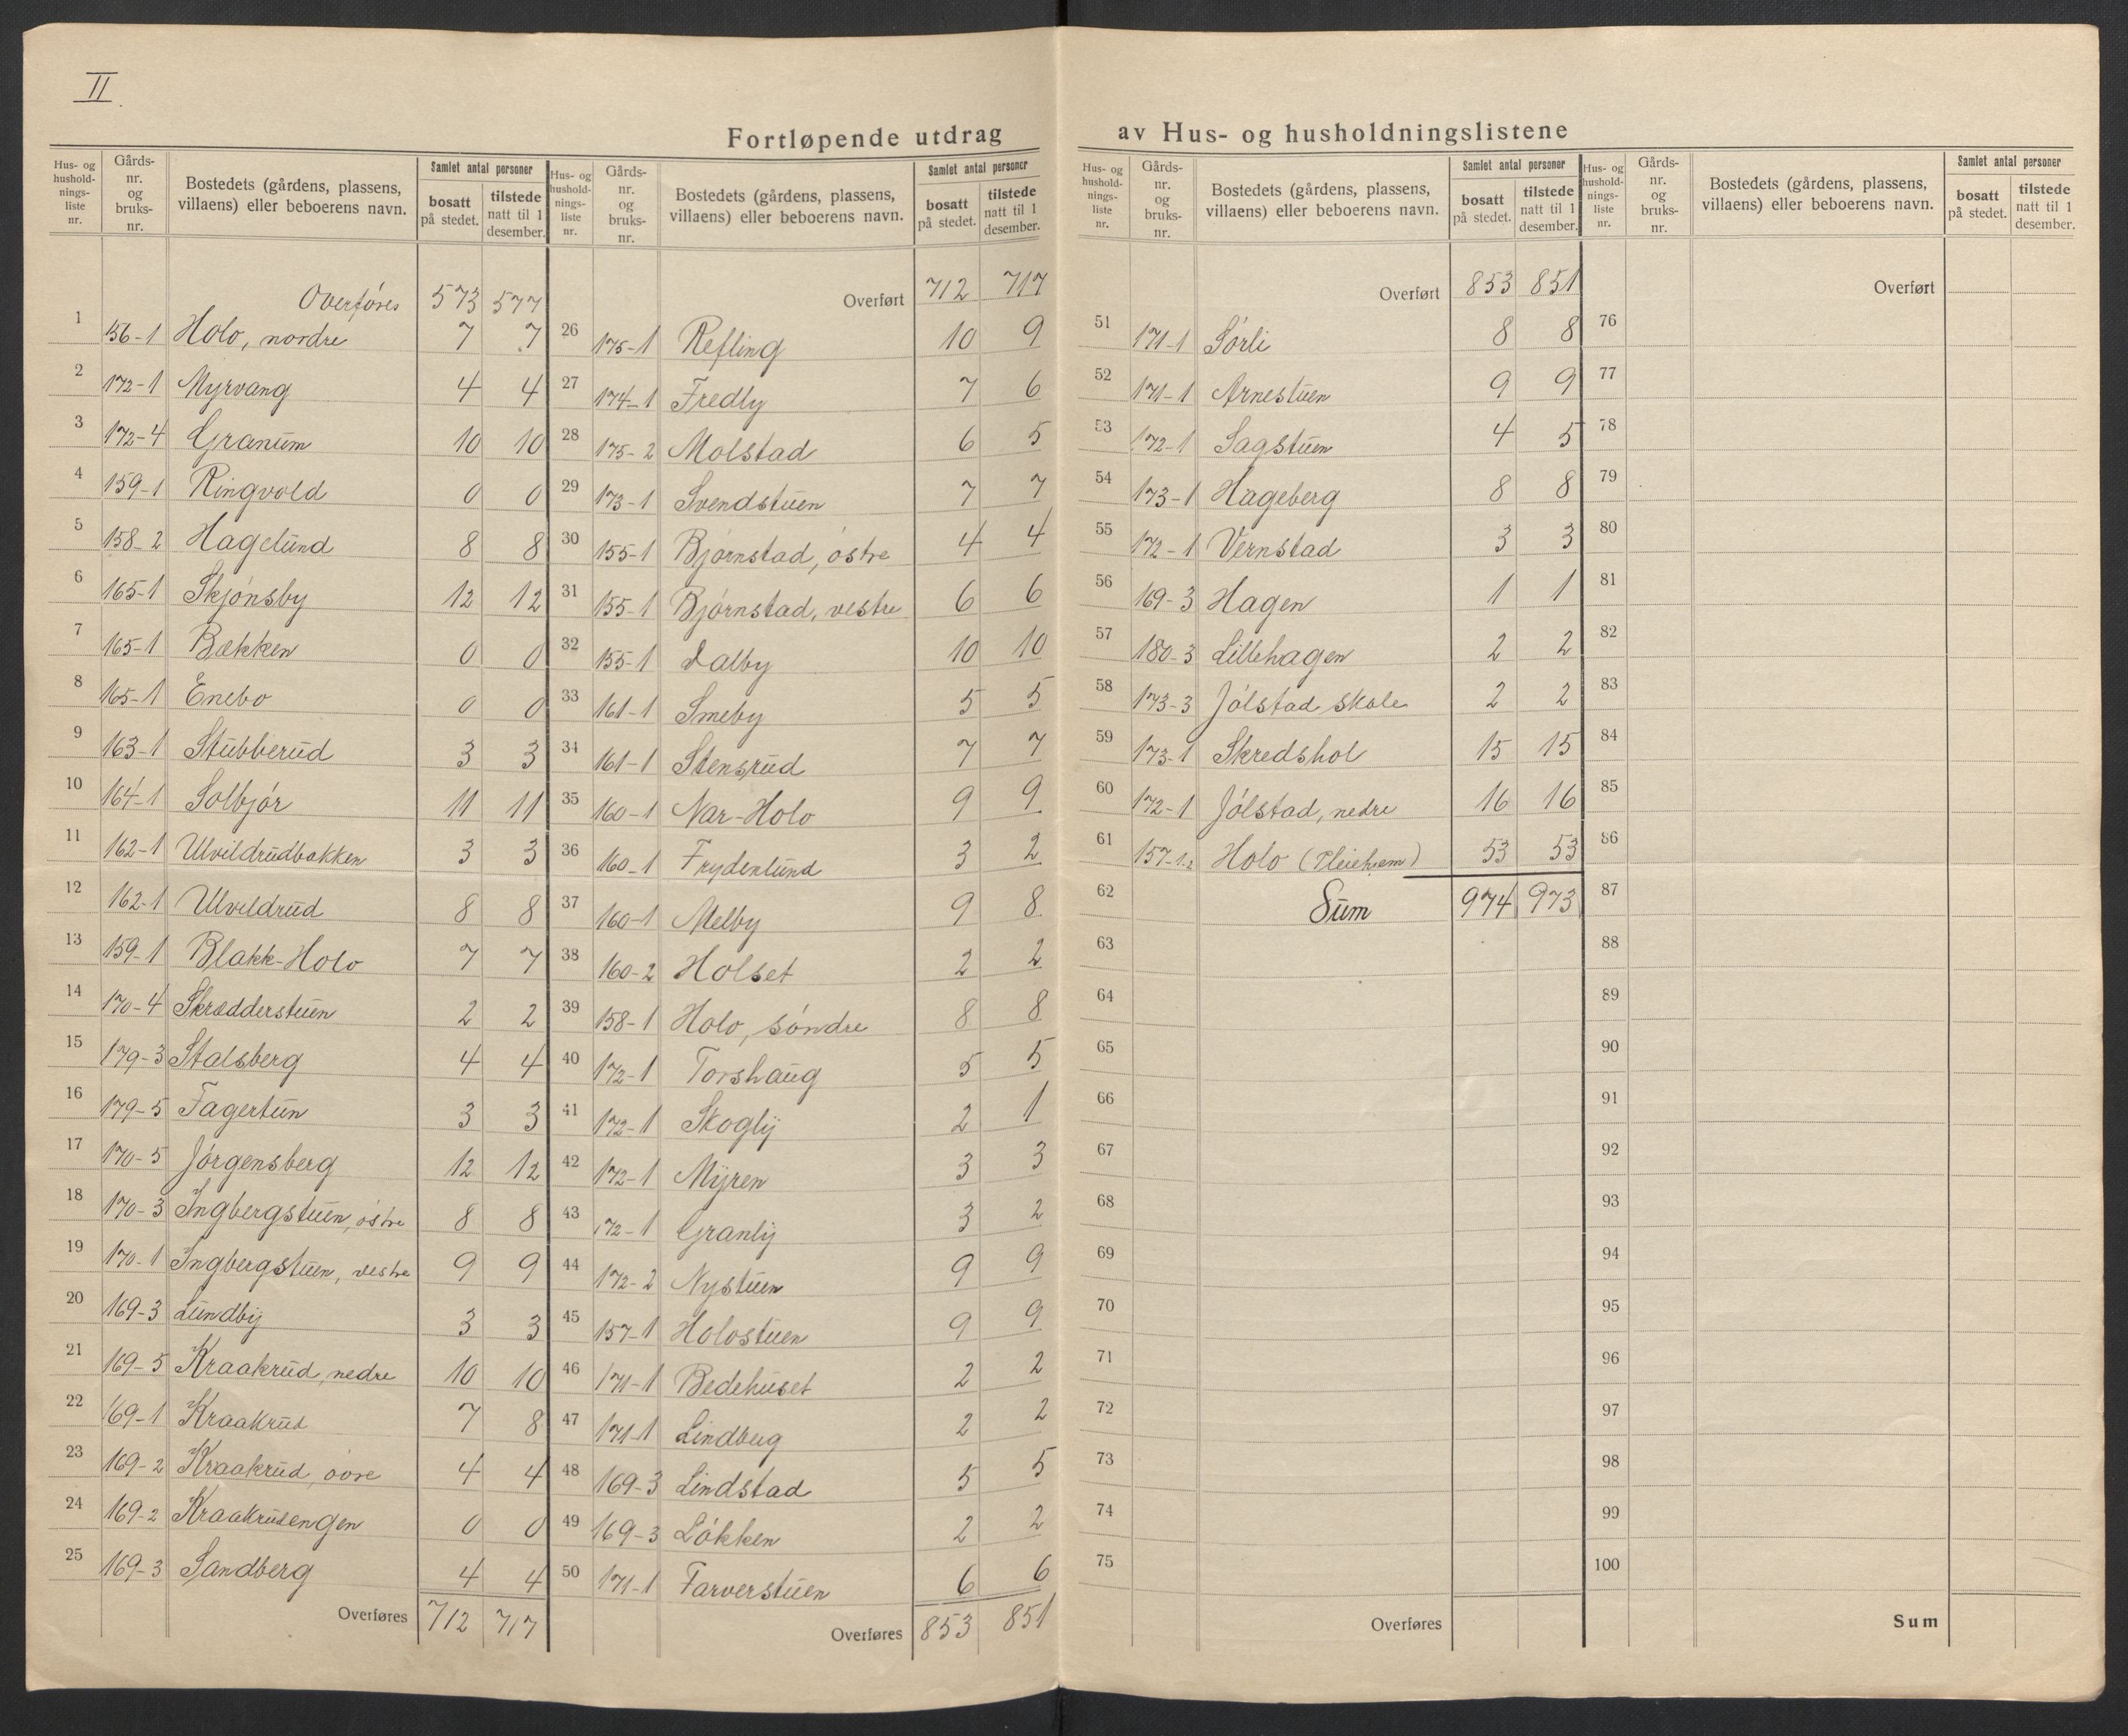 II
Fortløpende utdrag av Hus- og husholdningslistene
Hus- og hushold-nings-liste nr. | Gårds-nr. og bruks-nr. | Bostedets (gårdens, plassens, villaens) eller beboerens navn. | Samlet antal personer | bosatt på stedet. | tilstede natt til 1 desember.
Overføres 573 577
1 156-1 Holo, nordre 7 7
2 172-1 Myrvang 4 4
3 172-4 Granum 10 10
4 159-1 Ringvold 0 0
5 158-2 Hagelund 8 8
6 165-1 Skjønsby 12 12
7 165-1 Bækken 0 0
8 165-1 Enebo 0 0
9 163-1 Stubberud 3 3
10 164-1 Solbjør 11 11
11 162-1 Ulvildrudbakken 3 3
12 162-1 Ulvildrud 8 8
13 159-1 Blakk-Holo 7 7
14 170-4 Skrædderstuen 2 2
15 179-3 Stalsberg 4 4
16 179-5 Fagertun 3 3
17 170-5 Jørgensberg 12 12
18 170-3 Ingbergstuen, østre 8 8
19 170-1 Ingbergstuen, vestre 9 9
20 169-3 Lundby 3 3
21 169-5 Kraakrud, nedre 10 10
22 169-1 Kraakrud 7 8
23 169-2 Kraakrud, øvre 4 4
24 169-2 Kraakrudengen 0 0
25 169-3 Sandberg 4 4
Overføres 712 717
Hus- og hushold-nings-liste nr. | Gårds-nr. og bruks-nr. | Bostedets (gårdens, plassens, villaens) eller beboerens navn. | Samlet antal personer | bosatt på stedet. | tilstede natt til 1 desember.
Overført 712 717
26 175-1 Refling 10 9
27 174-1 Fredly 7 6
28 175-2 Molstad 6 5
29 173-1 Svendstuen 7 7
30 155-1 Bjørnstad, østre 4 4
31 155-1 Bjørnstad, vestre 6 6
32 155-1 Dalby 10 10
33 161-1 Smeby 5 5
34 161-1 Stensrud 7 7
35 160-1 Nar-Holo 9 9
36 160-1 Frydenlund 3 2
37 160-1 Melby 9 8
38 160-2 Holset 2 2
39 158-1 Holo, søndre 8 8
40 172-1 Torshaug 5 5
41 172-1 Skogly 2 1
42 172-1 Myren 3 3
43 172-1 Granly 3 2
44 172-2 Nystuen 9 9
45 157-1 Holostuen 9 9
46 171-1 Bedehuset 2 2
47 171-1 Lindberg 2 2
48 169-3 Lindstad 5 5
49 169-3 Løkken 2 2
50 171-1 Farverstuen 6 6
Overføres 853 851
Hus- og hushold-nings-liste nr. | Gårds-nr. og bruks-nr. | Bostedets (gårdens, plassens, villaens) eller beboerens navn. | Samlet antal personer | bosatt på stedet. | tilstede natt til 1 desember.
Overført 853 851
51 171-1 Sørli 8 8
52 171-1 Arnestuen 9 9
53 172-1 Sagstuen 4 5
54 173-1 Hageberg 8 8
55 172-1 Vernstad 3 3
56 169-3 Hagen 1 1
57 180-3 Lillehagen 2 2
58 173-3 Jølstad skole 2 2
59 173-1 Skredshol 15 15
60 172-1 Jølstad, nedre 16 16
61 157-1.2 Holo (Pleiehjem) 53 53
62 Sum 974 973
63
64
65
66
67
68
69
70
71
72
73
74
75
Overføres
Hus- og hushold-nings-liste nr. | Gårds-nr. og bruks-nr. | Bostedets (gårdens, plassens, villaens) eller beboerens navn. | Samlet antal personer | bosatt på stedet. | tilstede natt til 1 desember.
Overført
76
77
78
79
80
81
82
83
84
85
86
87
88
89
90
91
92
93
94
95
96
97
98
99
100
Sum